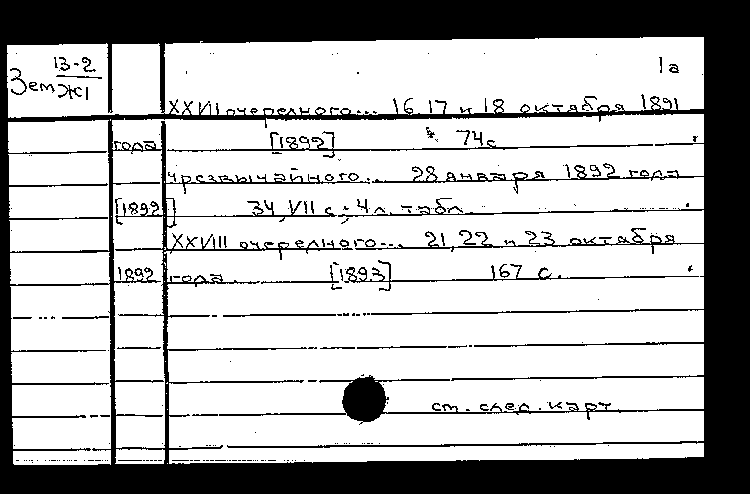 13-2 1а
Зем Ж1
XXVII очередного... 16, 17 и 18 октября 1891
года [1892] 74 с.
чрезвычайного... 28 января 1892 года
[1892] 34, VII с.; 4 л. табл.
XXVIII очередного... 21, 22 и 23 октября
1892 года. [1893] 167 с.
см. след. карт.